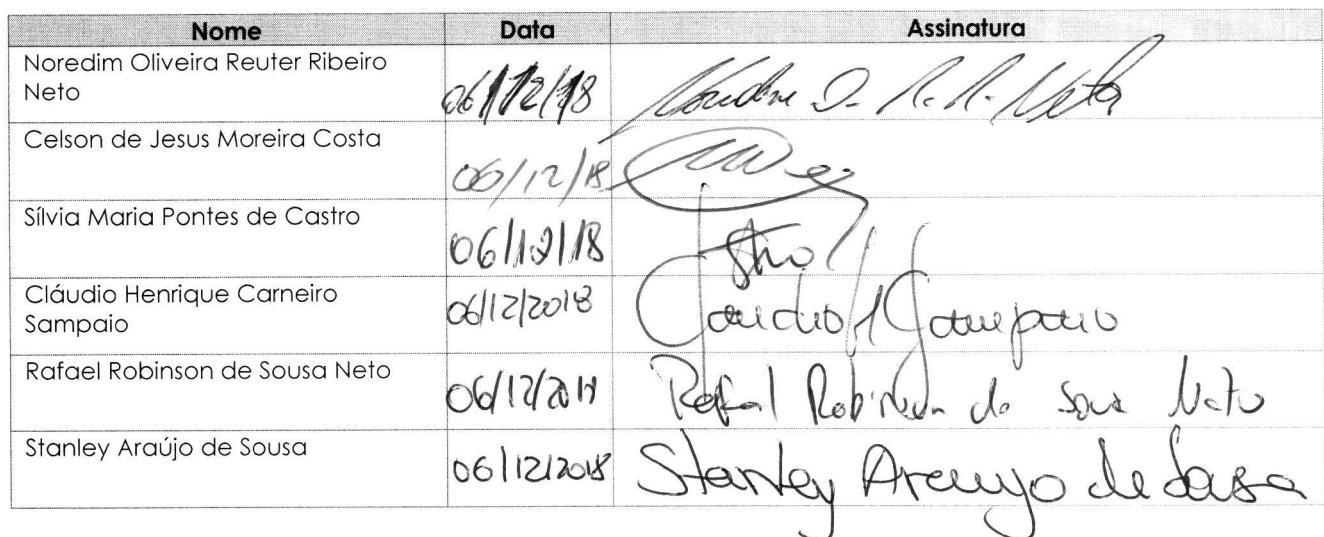 Nome Data Assinatura
Noredim Oliveira Reuter Ribeiro
Neto
06/12/18
Celson de Jesus Moreira Costa
06/12/18
Sílvia Maria Pontes de Castro
06/12/18
Cláudio Henrique Carneiro
Sampaio
06/12/2018 Claudio H Sampaio
Rafael Robinson de Sousa Neto
06/12/2018 Rafael Robinson de Sousa Neto
Stanley Araújo de Sousa
06/12/2018 Stanley Araujo de Sousa